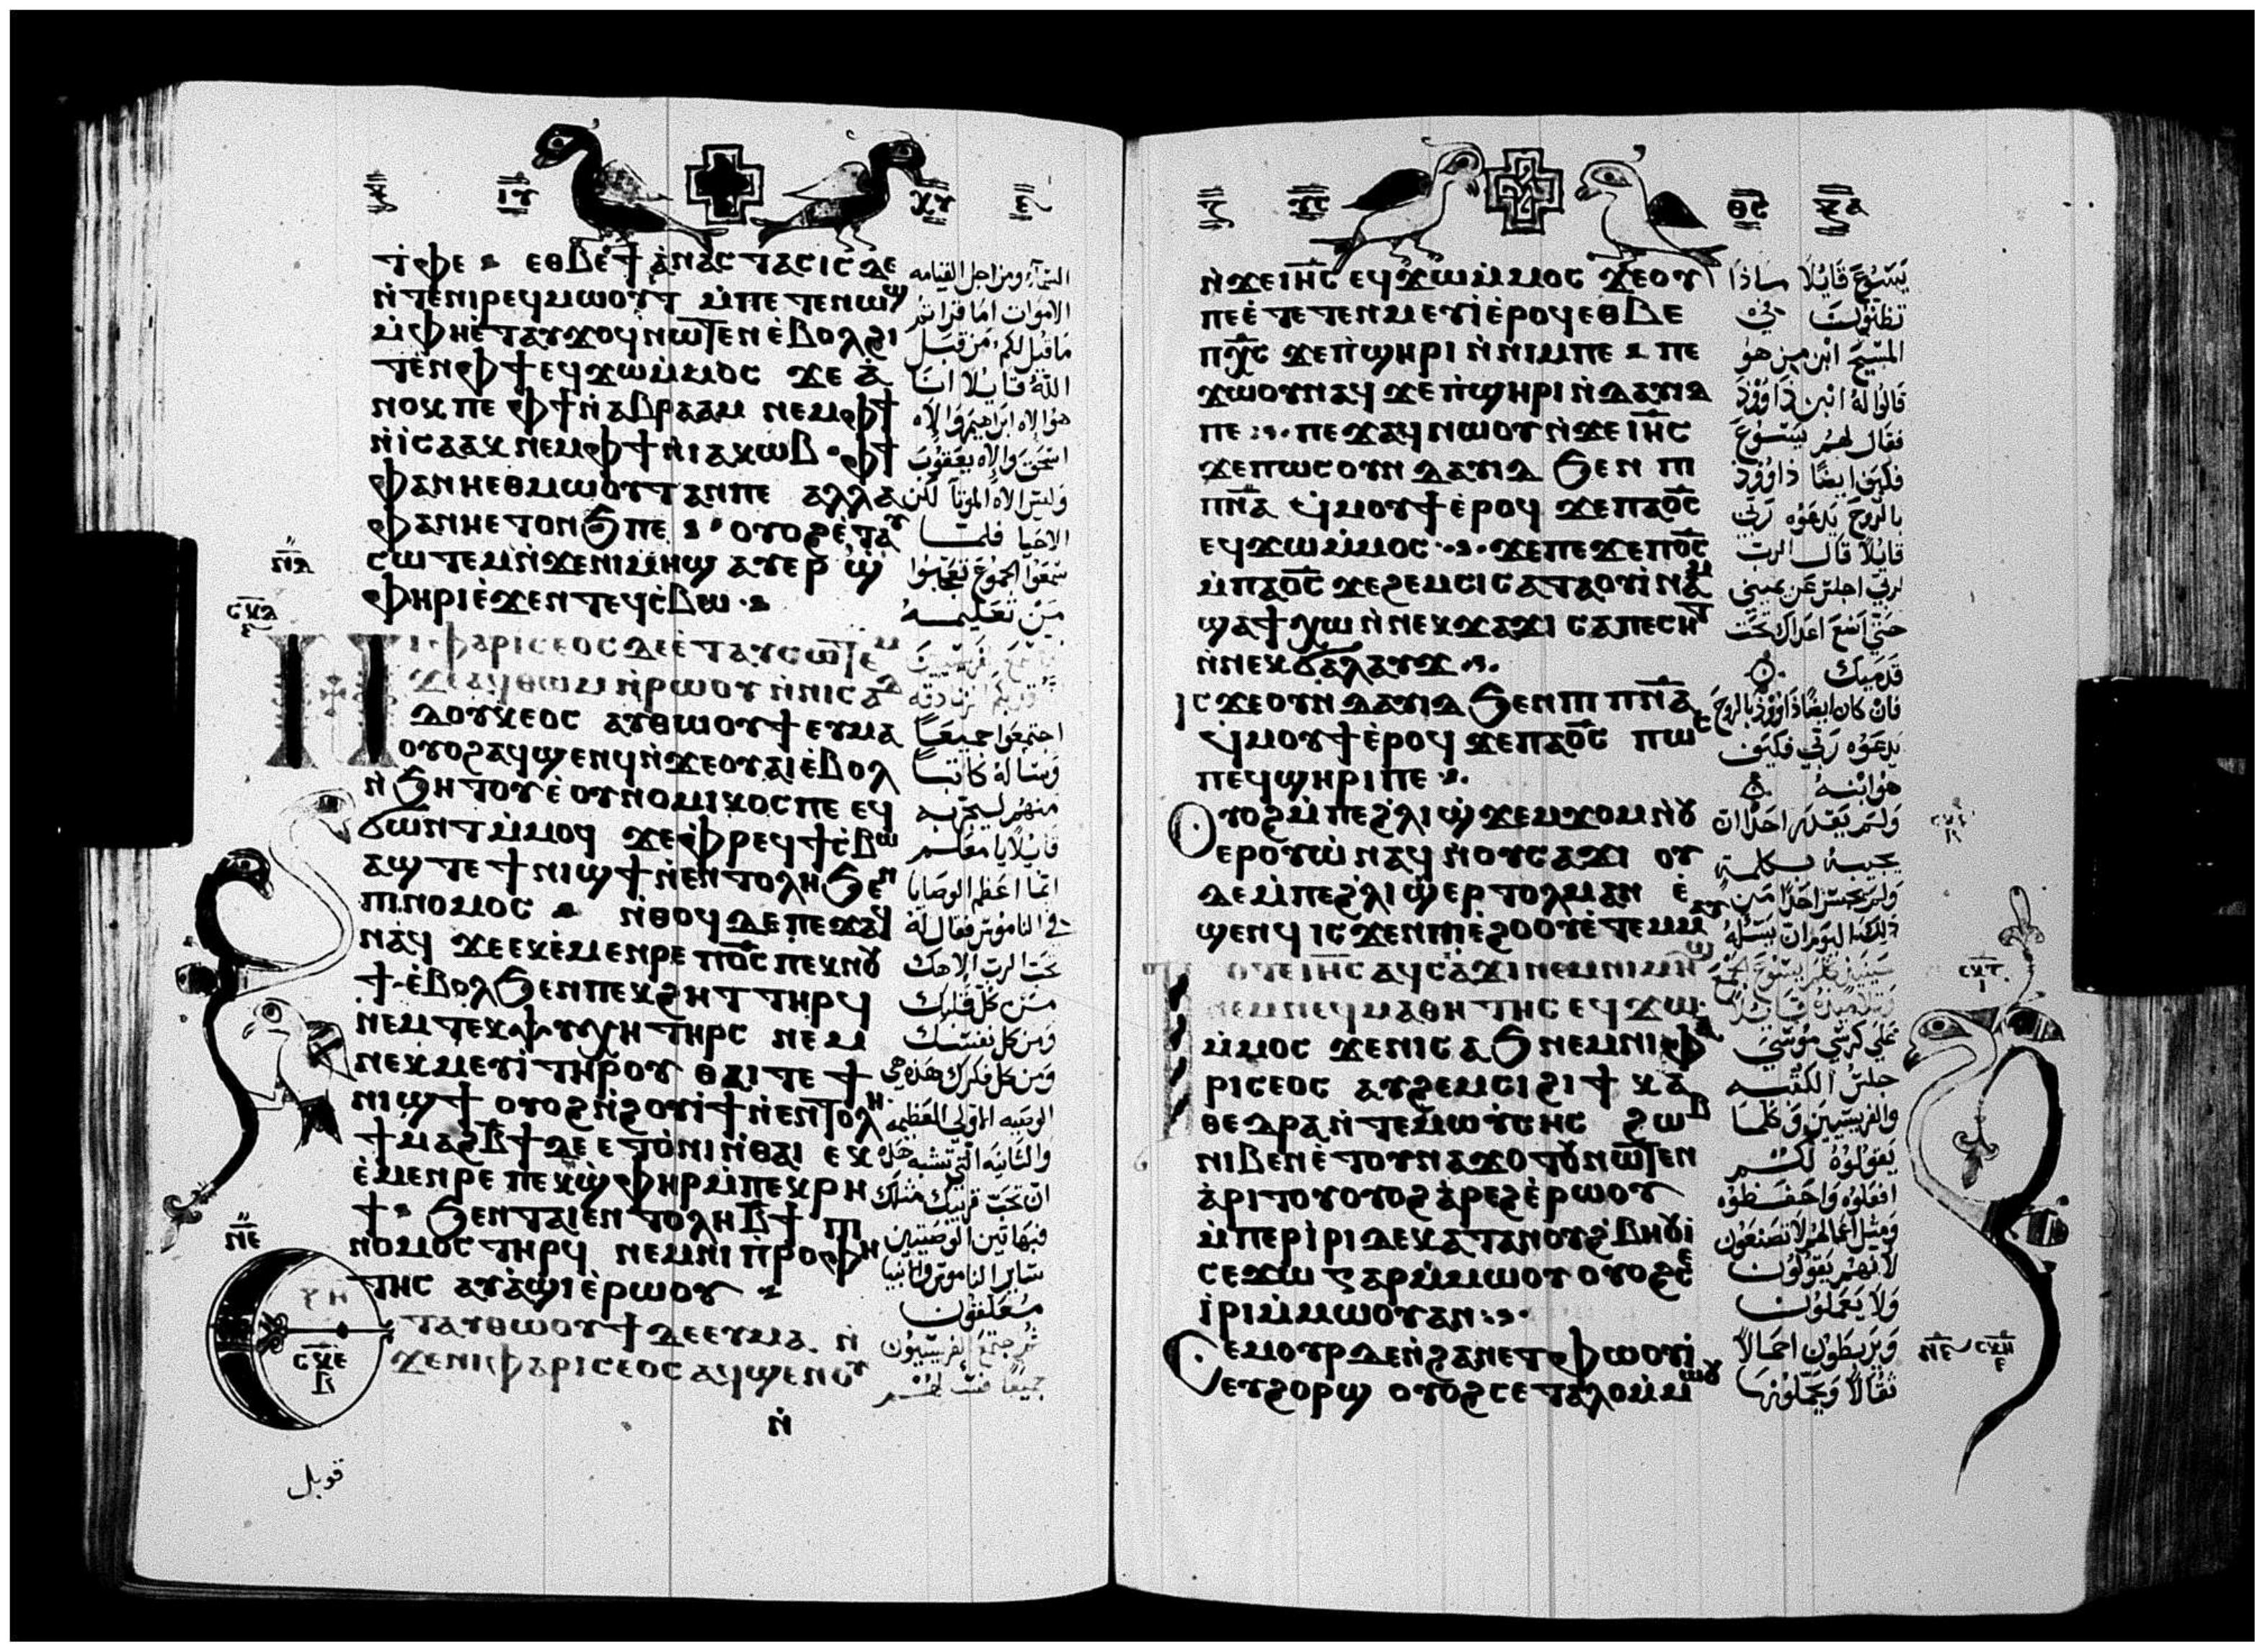 ⲒⲨ ⲬⲨ
ⲧ̀ⲫⲉ ⲉⲑⲃⲉ ϯⲁⲛⲁⲥⲧⲁⲥⲓⲥ ⲇⲉ
ⲛ̀ⲧⲉⲛⲓⲣⲉϥⲙⲱⲟⲩⲧ ⲙ̀ⲡⲉⲧⲉⲛⲱϣ
ⲙ̀ⲫⲏⲉ̀ⲧⲁⲩϫⲟϥ ⲛⲱⲧⲉⲛ ⲉ̀ⲃⲟⲗϩⲓ
ⲧⲉⲛⲫϯ ⲉϥϫⲱⲙ̀ⲙⲟⲥ ϫⲉ ⲁ̀
ⲛⲟⲕ ⲡⲉ ⲫϯ ⲛ̀ⲁⲃⲣⲁⲁⲙ ⲛⲉⲙⲫϯ
ⲛ̀ⲓⲥⲁⲁⲕ ⲛⲉⲙⲫϯ ⲛ̀ⲓⲁⲕⲱⲃ ⲫϯ
ⲫⲁⲛⲏⲉⲑⲙⲱⲟⲩⲧ ⲁⲛⲡⲉ ⲁⲗⲗⲁ
ⲫⲁⲛⲏⲉⲧⲟⲛϧ ⲡⲉ ⲟⲩⲟϩ ⲉ̀ⲧⲁⲩ
ⲥⲱⲧⲉⲙ ⲛ̀ϫⲉⲛⲓⲙⲏϣ ⲁⲩⲉⲣϣ̀
ⲫⲏⲣⲓ ⲉ̀ϫⲉⲛ ⲧⲉϥⲥ̀ⲃⲱ
ⲛⲓⲫⲁⲣⲓⲥⲉⲟⲥ ⲇⲉ ⲉ̀ⲧⲁⲩⲥⲱⲧⲉⲙ
ϫⲉⲁϥⲑⲱⲙ ⲛ̀ⲣⲱⲟⲩ ⲛ̀ⲛⲓⲥⲁⲇ
ⲇⲟⲩⲕⲉⲟⲥ ⲁⲩⲑⲱⲟⲩϯ ⲉⲩⲙⲁ
ⲟⲩⲟϩ ⲁϥϣⲉⲛϥ ⲛ̀ϫⲉⲟⲩⲁⲓ ⲉ̀ⲃⲟⲗ
ⲛ̀ϧⲏⲧⲟⲩ ⲉ̀ⲟⲩⲛⲟⲙⲓⲕⲟⲥ ⲡⲉ ⲉϥ
ϭⲱⲛⲧ ⲙ̀ⲙⲟϥ ϫⲉ ⲫⲣⲉϥϯⲥ̀ⲃⲱ
ⲁϣ ⲧⲉ ϯⲛⲓϣϯ ⲛ̀ⲉⲛⲧⲟⲗⲏ ϧⲉⲛ
ⲡⲓⲛⲟⲙⲟⲥ ⲛ̀ⲑⲟϥ ⲇⲉ ⲡⲉϫⲁϥ
ⲛⲁϥ ϫⲉ ⲉⲕⲉ̀ⲙⲉⲛⲣⲉ ⲡⲟ̅ⲥ̅ ⲡⲉⲕⲛⲟⲩ
ϯ ⲉ̀ⲃⲟⲗ ϧⲉⲛ ⲡⲉⲕϩⲏⲧ ⲧⲏⲣϥ
ⲛⲉⲙ ⲧⲉⲕⲯⲩⲭⲏ ⲧⲏⲣⲥ ⲛⲉⲙ
ⲛⲉⲕⲙⲉⲩⲓ̀ ⲧⲏⲣⲟⲩ ⲑⲁⲓ ⲧⲉ ϯ
ⲛⲓϣϯ ⲟⲩⲟϩ ⲛ̀ϩⲟⲩⲓ̀ϯ ⲛ̀ⲉⲛⲧⲟⲗⲏ
ϯⲙⲁϩⲃ̅ϯ ⲇⲉ ⲉⲧⲟ̀ⲛⲓ ⲛ̀ⲑⲁⲓ ⲉⲕ
ⲉ̀ⲙⲉⲛⲣⲉ ⲡⲉⲕϣ̀ⲫⲏⲣ ⲙ̀ⲡⲉⲕⲣⲏ
ϯ ϧⲉⲛ ⲧⲁⲓⲉⲛⲧⲟⲗⲏ ⲃ̅ϯ ⲡⲓ
ⲛⲟⲙⲟⲥ ⲧⲏⲣϥ ⲛⲉⲙ ⲛⲓⲡ̀ⲣⲟⲫⲏ
ⲧⲏⲥ ⲁⲩⲁ̀ϣⲓ ⲉ̀ⲣⲱⲟⲩ
ⲧⲁⲩⲑⲱⲟⲩϯ ⲇⲉ ⲉⲩⲙⲁ ⲛ̀
ϫⲉⲛⲓⲫⲁⲣⲓⲥⲉⲟⲥ ⲁϥϣⲉⲛⲟⲩ
ⲛ̀
السماء ومن اجل القيامه
الاموات اما قراتم
ما قيل لكم من قبل
الله قايلا انا
هو الاه ابراهيم والاه
اسحق والاه يعقوب
وليس الاه الموتا لكن
الاحيا فلما
سمعوا الجموع تعجبوا
من تعليمه
اجتمعوا جميعا
وساله كاتبا
منهم ليجربه
قايلا يا معلم
ايما اعظم الوصايا
في الناموس فقال له
تحب الرب الاهك
من كل قلبك
ومن كل نفسك
ومن كل فكرك هذه هي
الوصيه الاولى العظيمه
والثانيه التي تشبه هذه
ان تحب قريبك مثلك
فبهاتين الوصيتين
ساير الناموس والانبيا
متعلقون
ثم اجتمع الفريسيون
جميعا فسالهم
ⲛ̅ⲇ̅
ⲥ̅ⲕ̅ⲇ̅
ⲛ̅ⲉ̅
ⲥ̅ⲕ̅ⲉ̅
ⲃ̅
قوبل
ⲨⲤ ⲐⲤ
ⲛ̀ϫⲉⲓⲏ̅ⲥ̅ ⲉϥϫⲱⲙ̀ⲙⲟⲥ ϫⲉⲟⲩ
ⲡⲉⲉ̀ⲧⲉⲧⲉⲛⲙⲉⲩⲓ̀ ⲉ̀ⲣⲟϥ ⲉⲑⲃⲉ
ⲡⲭ̅ⲥ̅ ϫⲉ ⲡ̀ϣⲏⲣⲓ ⲛ̀ⲛⲓⲙ ⲡⲉ ⲡⲉ
ϫⲱⲟⲩ ⲛⲁϥ ϫⲉ ⲡ̀ϣⲏⲣⲓ ⲛ̀ⲇⲁⲩⲓⲇ
ⲡⲉ ⲡⲉϫⲁϥ ⲛⲱⲟⲩ ⲛ̀ϫⲉⲓⲏ̅ⲥ̅
ϫⲉ ⲡⲱⲥ ⲟⲩⲛ ⲇⲁⲩⲓⲇ ϧⲉⲛ ⲡⲓ
ⲡⲛ̅ⲁ̅ ϥ̀ⲙⲟⲩϯ ⲉ̀ⲣⲟϥ ϫⲉ ⲡⲁⲟ̅ⲥ̅
ⲉϥϫⲱⲙ̀ⲙⲟⲥ ϫⲉ ⲡⲉϫⲉ ⲡⲟ̅ⲥ̅
ⲙ̀ⲡⲁⲟ̅ⲥ̅ ϫⲉ ϩⲉⲙⲥⲓ ⲥⲁⲧⲁⲟⲩⲓ̀ⲛⲁⲙ
ϣⲁϯⲭⲱ ⲛ̀ⲛⲉⲕϫⲁϫⲓ ⲥⲁⲡⲉⲥⲏⲧ
ⲛ̀ⲛⲉⲕϭⲁⲗⲁⲩϫ
ⲓⲥϫⲉ ⲟⲩⲛ ⲇⲁⲩⲓⲇ ϧⲉⲛ ⲡⲓⲡⲛ̅ⲁ̅
ϥ̀ⲙⲟⲩϯ ⲉ̀ⲣⲟϥ ϫⲉ ⲡⲁⲟ̅ⲥ̅ ⲡⲱⲥ
ⲡⲉϥϣⲏⲣⲓ ⲡⲉ
ⲟⲩⲟϩ ⲙ̀ⲡⲉϩ̀ⲗⲓ ϣ̀ϫⲉⲙϫⲟⲙ ⲛ̀
ⲉⲣⲟⲩⲱ̀ ⲛⲁϥ ⲛ̀ⲟⲩⲥⲁϫⲓ ⲟⲩ
ⲇⲉ ⲙ̀ⲡⲉϩ̀ⲗⲓ ϣ̀ⲉⲣⲧⲟⲗⲙⲁⲛ ⲉ̀
ϣⲉⲛϥ ⲓⲥϫⲉⲛ ⲡⲓⲉ̀ϩⲟⲟⲩ ⲉ̀ⲧⲉⲙⲙⲁⲩ
ⲧⲟⲧⲉ ⲓⲏ̅ⲥ̅ ⲁϥⲥⲁϫⲓ ⲛⲉⲙ ⲛⲓⲙⲏϣ
ⲛⲉⲙ ⲛⲉϥⲙⲁⲑⲏⲧⲏⲥ ⲉϥϫⲱ
ⲙ̀ⲙⲟⲥ ϫⲉ ⲛⲓⲥⲁϧ ⲛⲉⲙ ⲛⲓⲫⲁ
ⲣⲓⲥⲉⲟⲥ ⲁⲩϩⲉⲙⲥⲓ ϩⲓ ϯⲕⲁ
ⲑⲉⲇⲣⲁ ⲛ̀ⲧⲉⲙⲱⲩ̀ⲥⲏⲥ ϩⲱⲃ
ⲛⲓⲃⲉⲛ ⲉ̀ⲧⲟⲩⲛⲁϫⲟⲧⲟⲩ ⲛⲱⲧⲉⲛ
ⲁ̀ⲣⲓⲧⲟⲩ ⲟⲩⲟϩ ⲁ̀ⲣⲉϩ ⲉ̀ⲣⲱⲟⲩ
ⲙ̀ⲡⲉⲣⲓ̀ⲣⲓ ⲇⲉ ⲕⲁⲧⲁ ⲛⲟⲩϩ̀ⲃⲏⲟⲩⲓ̀
ⲥⲉϫⲱ ⲅⲁⲣ ⲙ̀ⲙⲱⲟⲩ ⲟⲩⲟϩ ⲥⲉ
ⲓ̀ⲣⲓ ⲙ̀ⲙⲱⲟⲩ ⲁⲛ
ⲥⲉⲙⲟⲩⲣ ⲇⲉ ⲛ̀ϩⲁⲛⲉⲧⲫⲱⲟⲩⲓ̀
ⲉⲩϩⲟⲣϣ ⲟⲩⲟϩ ⲥⲉⲧⲁⲗⲟ ⲙ̀ⲙⲱⲟⲩ
يسوع قايلا ماذا
تظنون في
المسيح ابن من هو
قالوا له ابن داوود
فقال لهم يسوع
فكيف ايضا داوود
بالروح يدعوه ربي
قايلا قال الرب
لربي اجلس عن يميني
حتى اضع اعداك تحت
قدميك
فان كان ايضا داوود بالروح
يدعوه ربي فكيف
هو ابنه
ولم يقدر احدا ان
يجيبه بكلمة
ولم يجسر احدا من
ذلك اليوم ان يساله
على كرسي موسى
جلس الكتبه
والفريسيين وكلما
يقولوه لكم
افعلوه واحفظوه
ومثل اعمالهم لا تصنعون
لانهم يقولون
ولا يعملون
ويربطون احمالا
ثقالا ويحملونها